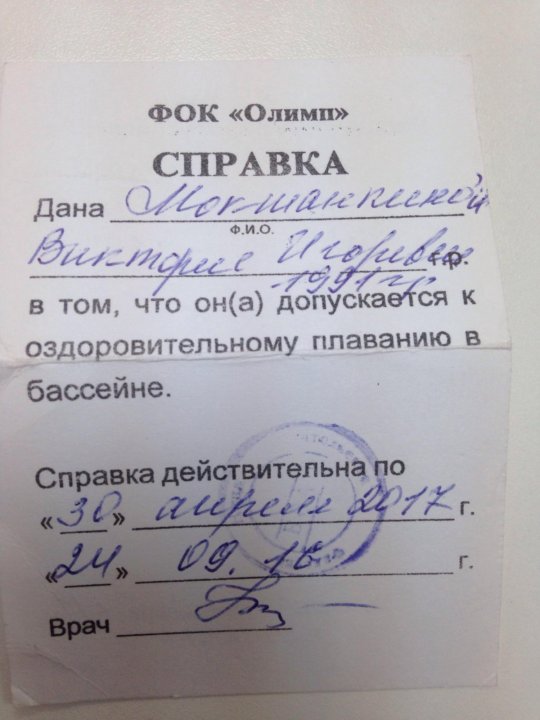 ФОК «Олимп»
СПРАВКА
Дана Мокшанкиной
Ф.И.О.
Виктории Игоревне г.р.
1991гр
в том, что он(а) допускается к
оздоровительному плаванию в
бассейне.
Справка действительна по
«30» апреля 2017 г.
«24» 09. 16 г.
Врач